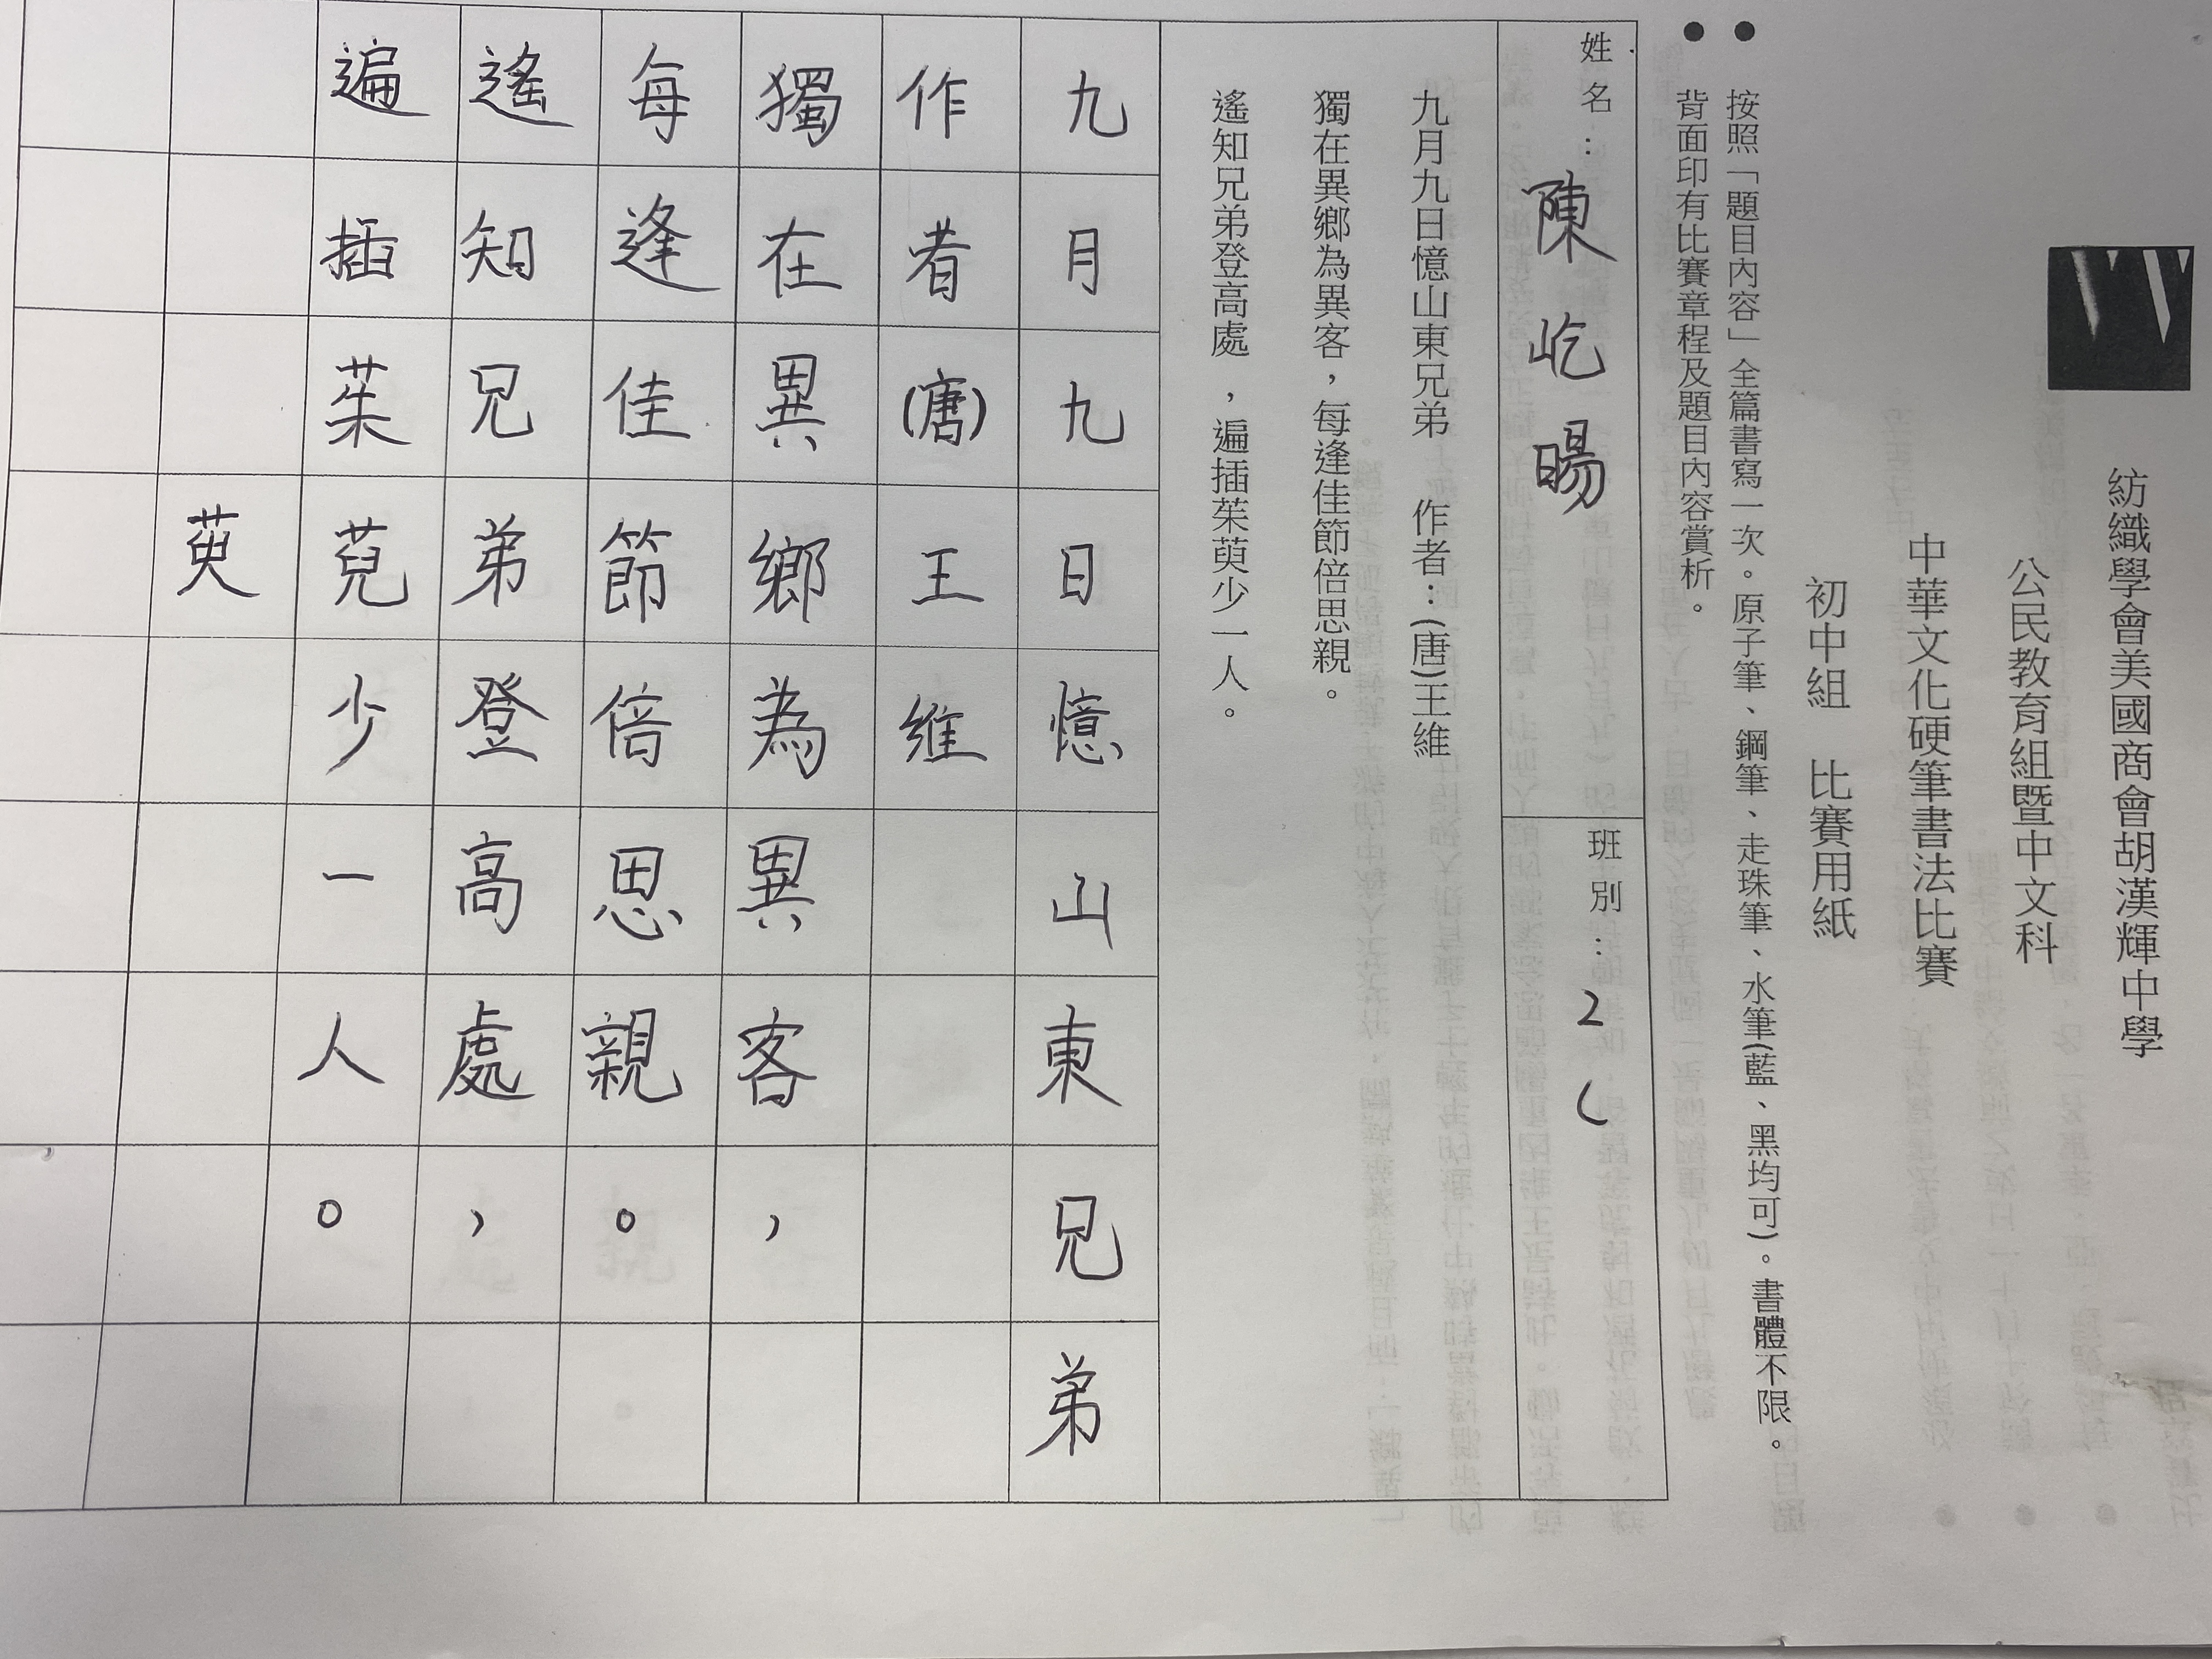 紡織學會美國商會胡漢輝中學
公民教育組暨中文科
中華文化硬筆書法比賽
初中組 比賽用紙
● 按照「題目內容」全篇書寫一次。原子筆、鋼筆、走珠筆、水筆(藍、黑均可)。書體不限。
● 背面印有比賽章程及題目內容賞析。
姓名:陳屹暘 班別:2C
九月九日憶山東兄弟 作者:(唐)王維
獨在異鄉為異客,每逢佳節倍思親。
遙知兄弟登高處,遍插茱萸少一人。
九月九日憶山東兄弟
作者(唐)王維
獨在異鄉為異客,
每逢佳節倍思親。
遙知兄弟登高處,
遍插茱少一人。
萸